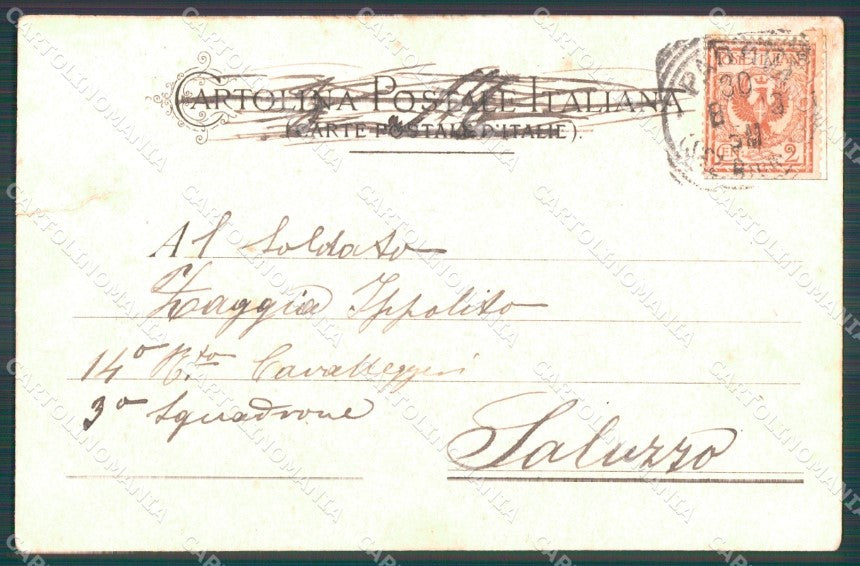 CARTOLINA POSTALE ITALIANA
(CARTE POSTALE D'ITALIE).
30
2
Al Soldato
Zaggia Ippolito
14º R.to Cavalleggeri
3º Squadrone
Saluzzo
CARTOLINOMANIA